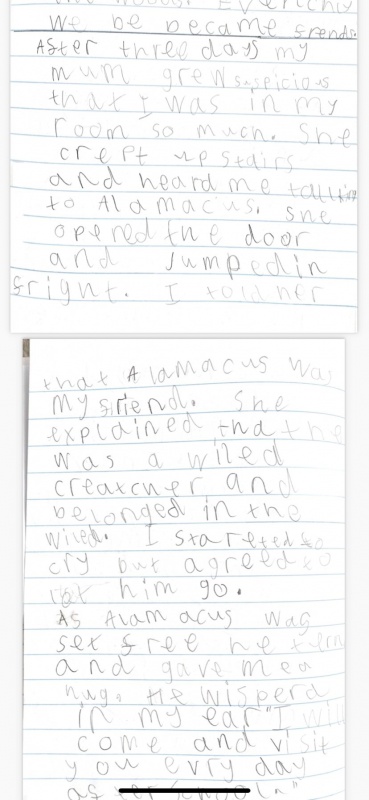 the woods. Evenchly
We be became frends.
After three days my
mum grew suspicious
that I was in my
room so much. She
crept up stairs
and heard me talking
to Alamacus. She
opened the door
and Jumped in
fright. I told her
that Alamacus was
my friend. She
explained that he
was a wiled
creatcuer and
belonged in the
wiled. I started to
cry but agreed to
let him go.
As Alamacus was
set free he turn
and gave me a
hug, He wisperd
in my ear "I will
come and visit
you evry day
after school"